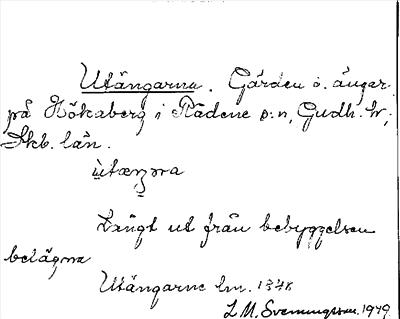 Utängarna. Gärden o. ängar
på Hökaberg i Rådene s:n, Gudh. hr,
Skb. län.
ùtæŋɳa
Långt ut från bebyggelsen
belägna
Utängarne lm. 1878
L M. Svenungsson. 1949.